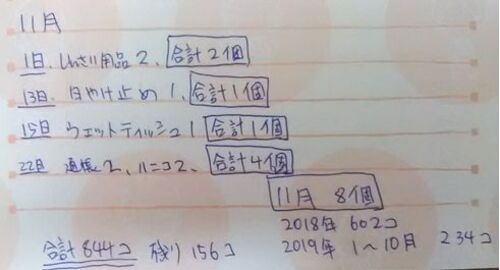 11月
1日、用品 2、合計2個
13日、日やけ止め 1、合計1個
15日 ウェットティッシュ 1 合計1個
22日 通帳2、ハンコ2、合計4個
11月 8個
2018年 602コ
2019年 1〜10月 234コ
合計844コ 残り156コ